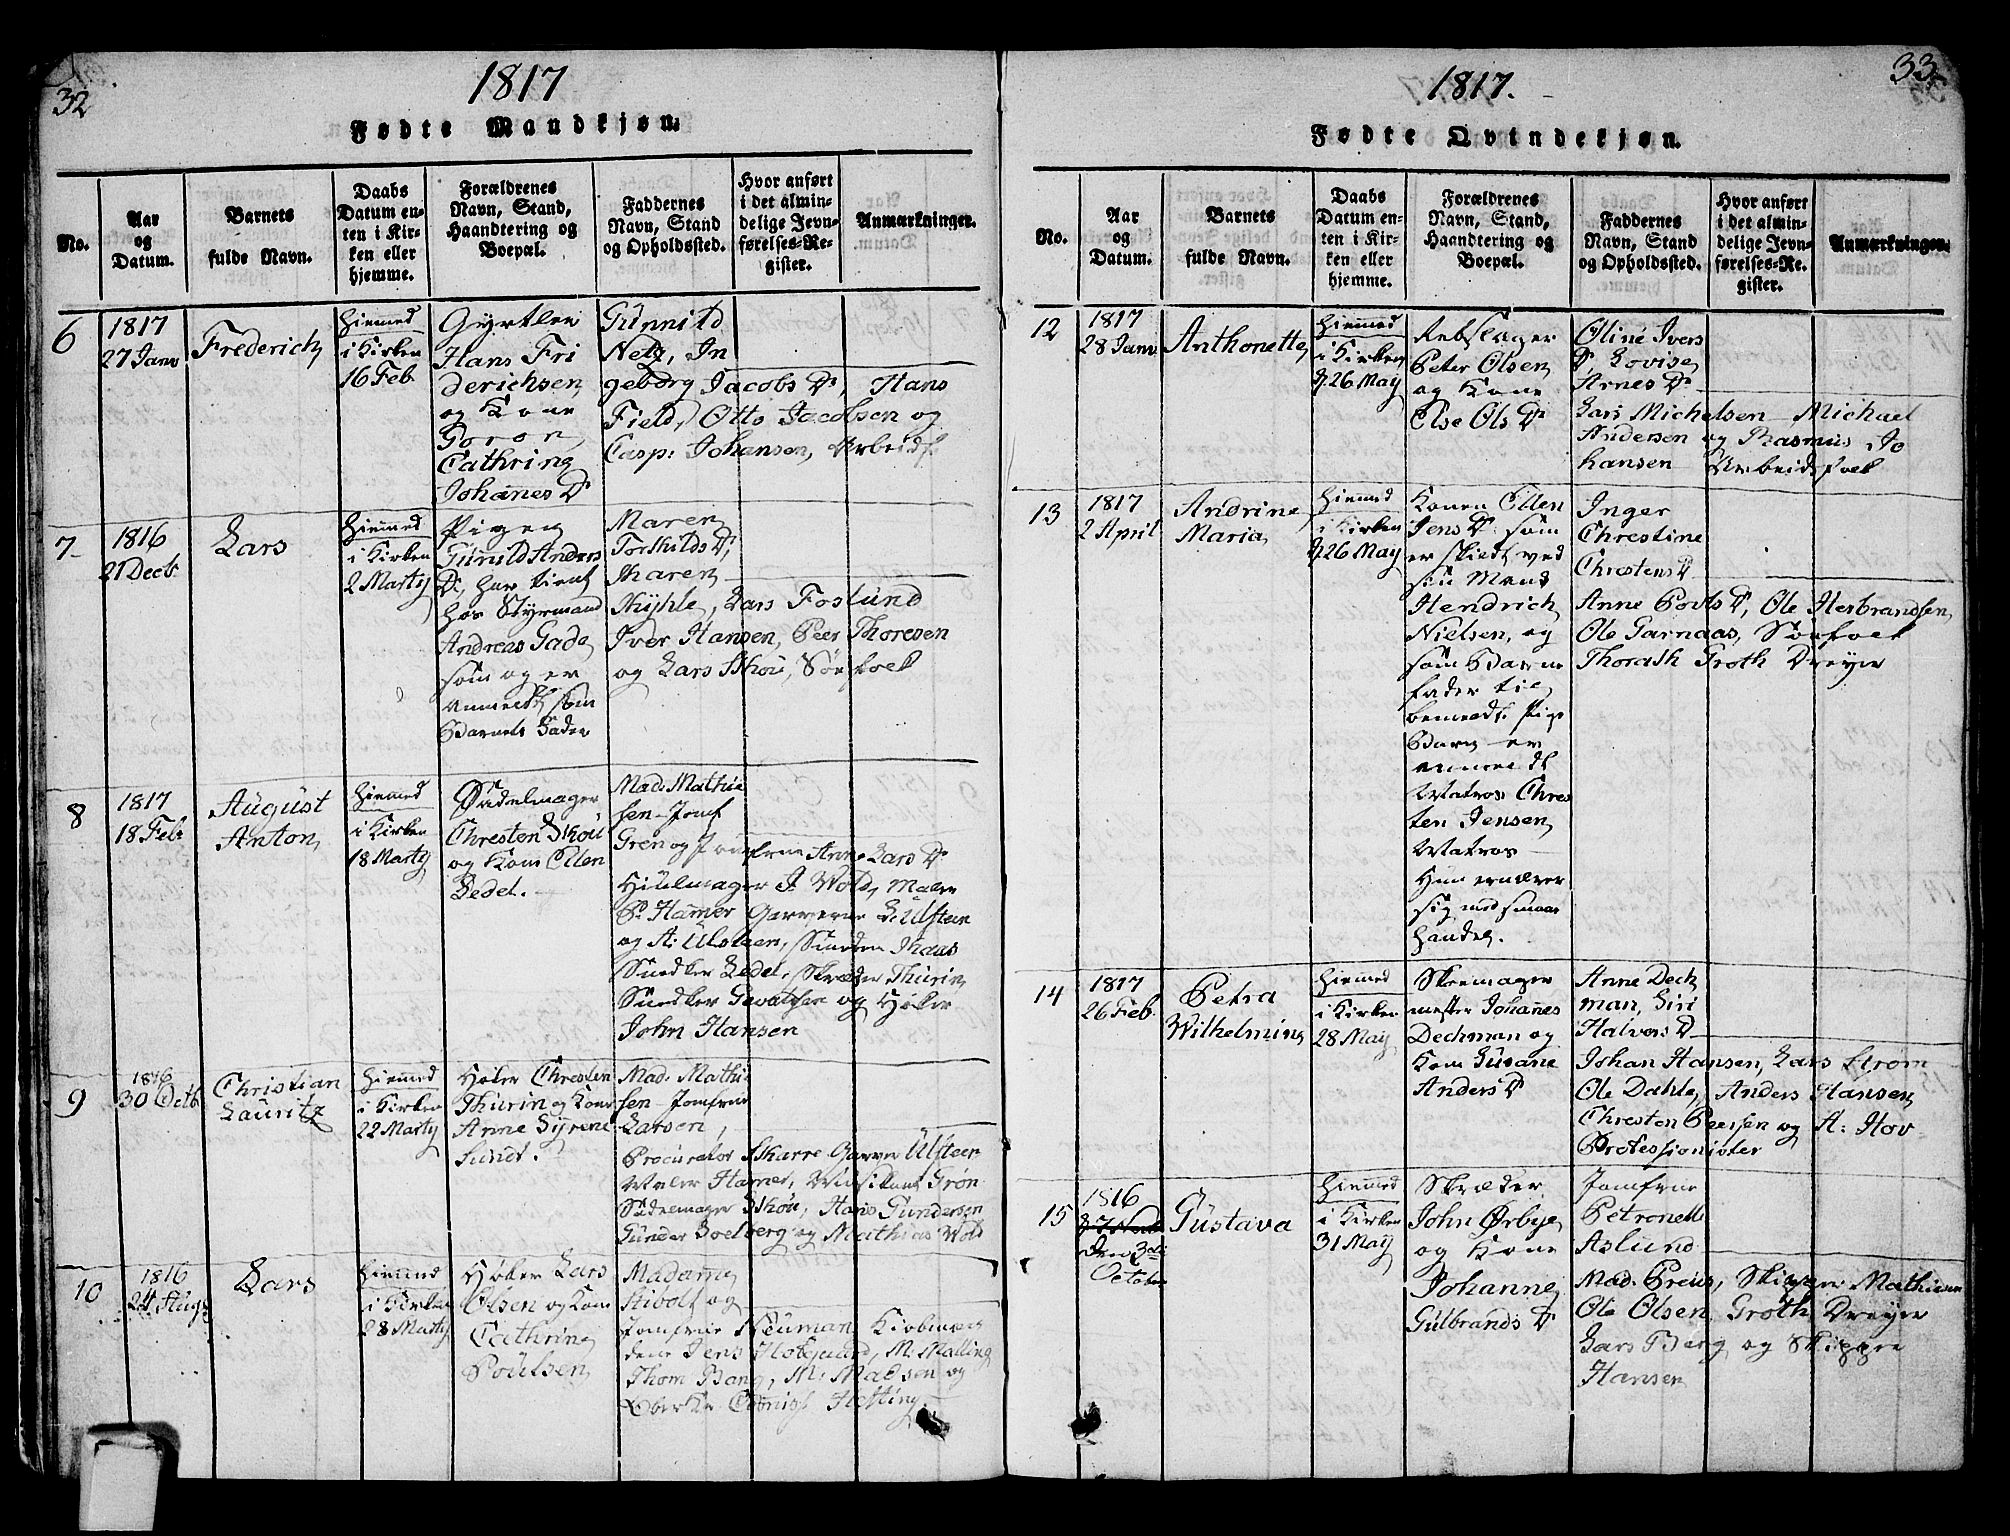 32
1817
Fødte Mandkjøn.
No.
Aar
og
Datum.
Barnets
fulde Navn.
Daabs
Datum en-
ten i Kir-
ken eller
hjemme.
Forældrenes
Navn, Stand,
Haandtering og
Boepæl.
Faddernes
Navn, Stand
og Opholdssted.
Hvor anført
i det almin-
delige Jevn-
førelses-Re-
gister.
Anmærkninger.
6
1817
27 Janv
Frederich
Hiemmed
i Kirken
16 Feb.
Gyrtler
Hans Fri
derichsen
og Kone
Goron
Cathrine
Johanes Dr
Gunnild
Nelz, In
geborg Jacobs Dr, Hans
Field, Otto Jacobsen og
Casp: Johansen, Arbeidsf
7
1816
21 Decb.
Lars
Hiemmed
i Kirken
2 Marty
Pigen
Gunild Anders
Dr, har tient
hos Styrmand
Andreas Gade
som og er
anmeldt som
Barnets Fader
Maren
Torkilds Dr,
Maren
Myhle, Lars Foslund
Iver Hansen, Peer Thoresen
og Lars Skou, Søefolk
8
1817
18 Feb.
August
Anton
Hiemmed
i Kirken
18 Marty
Sadelmager
Chresten Skou
og Kone Ellen
Ledel.
Mad. Mathie
sen - Jomf
Gren og Jomfrue Anne Lars Dr
Hiulmager J. Wold, Maler
P. Hamer Garverne L. Ulsteen
og A: Ulsteen, Snedker Haas
Snedker Ledel, Skræder Thurin
Snedker og Høker
John Hansen
9
1816
30 Octb.
Christian
Lauritz
Hiemmed
i Kirken
22 Marty
Høker Chresten
Thurin og Kone
Anne Syrene
Lundt.
Mad. Mathie
sen - Jomfrue
Larsen,
Procurator Skarre Garver Ulsteen
Maler Hamer, Musikant Grøn
Sadelmager Skou, Hans Gundersen
Gunder Boelberg og Mathias Wold
10
1816
24 Augs
Lars
Hiemmed
i Kirken
28 Marty
Høker Lars
Olsen og Kone
Cathrine
Poulsen
Madame
Stibolt og
Jomfrue Neuman, Kiøbmæn
dene Jens Hofgaard, M: Malling
Thom Bang, M: Madsen og
Hetting
33
1817.
Fødte Qvindekjøn.
No.
Aar
og
Datum.
Barnets
fulde Navn.
Daabs
Datum en-
ten i Kir-
ken eller
hjemme.
Forældrenes
Navn, Stand,
Haandtering og
Boepæl.
Faddernes
Navn, Stand
og Opholdssted.
Hvor anført
i det almin-
delige Jevn-
førelses-Re-
gister.
Anmærkninger.
12
1817
28 Janv
Anthonette
Hiemmed
i Kirken
d. 26 May
Rebslager
Peter Olsen
og Kone
Else Ols Dr
Oline Ivers
Dr, Lovise
Arnes Dr
Lars Michelsen Michael
Andersen og Rasmus Jo
hansen Arbeidsfolk
13
1817
2 April
Andrine
Maria
Hiemmed
i Kirken
d. 26 May
Konen Ellen
Jens Dr. som
er skildt ved
sin Mand
Hendrich
Nielsen, og
som Barne
fader til
bemeldt. Pige
Barn er
anmeldt
Matros Chres
ten Jensen
Matros
Hun ernærer
sig med smaae
Handel.
Inger
Chrestine
Chrestens Dr
Anne Povls Dr, Ole Herbrandsen
Ole Garnaas, Søefolk
Thorath Groth Dreyer
14
1817
26 Feb.
Petra
Wilhelmine
Hiemmed
i Kirken
28 May
Skoemager
mester Johanes
Dechman og
Kone Susane
Anders Dr
Anne Dech
man, Siri
Halvors Dr
Johan Hansen, Lars Strøm
Ole Dahle, Anders Hansen
Chresten Peersen og A: Hov
Professionister
15
1816
Den 3die
October
Gustava
Hiemmed
i Kirken
31 May
Skræder
John Ørbye
og Kone
Johanne
Gulbrands Dr
Jomfrue
Petronelle
Aslund
Mad. Preus, Skipper Mathiesen
Ole Olsen, Groth, Dreyer
Lars Berg og Skipper
Hansen